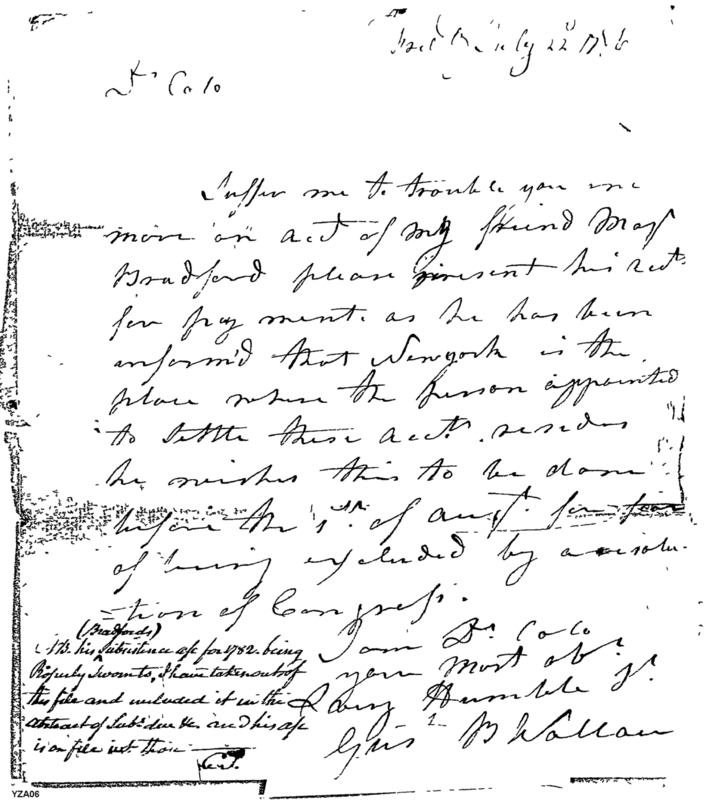 July 22d 1786
Dr Colo
Suffer me to trouble you once
more on acct of my friend Majr
Bradford please present his acct
for payment. as he has been
inform'd that Newyork is the
place where the person appointed
to settle these acctts. resides
he wishes this to be done
before the 1st. of augt. for fear
of being excluded by a resolu-
=tion of Congress.
I am Dr Colo
your most obt
& very Humble St.
Gusts B Wallace
(Bradfords)
NB. his subsistence a/c for 1782. being
Properly Sworn to, I have taken out of
this file and included it in the
abstract of Subs. due &c and his a/c
is on file wt. those
YZA06